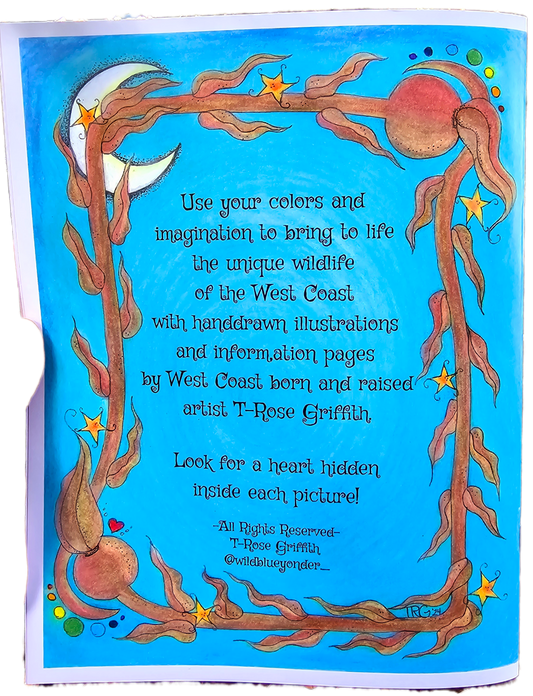 Use your colors and
imagination to bring to life
the unique wildlife
of the West Coast
with handdrawn illustrations
and information pages
by West Coast born and raised
artist T-Rose Griffith
Look for a heart hidden
inside each picture!
-All Rights Reserved-
T-Rose Griffith
@wildblueyonder_